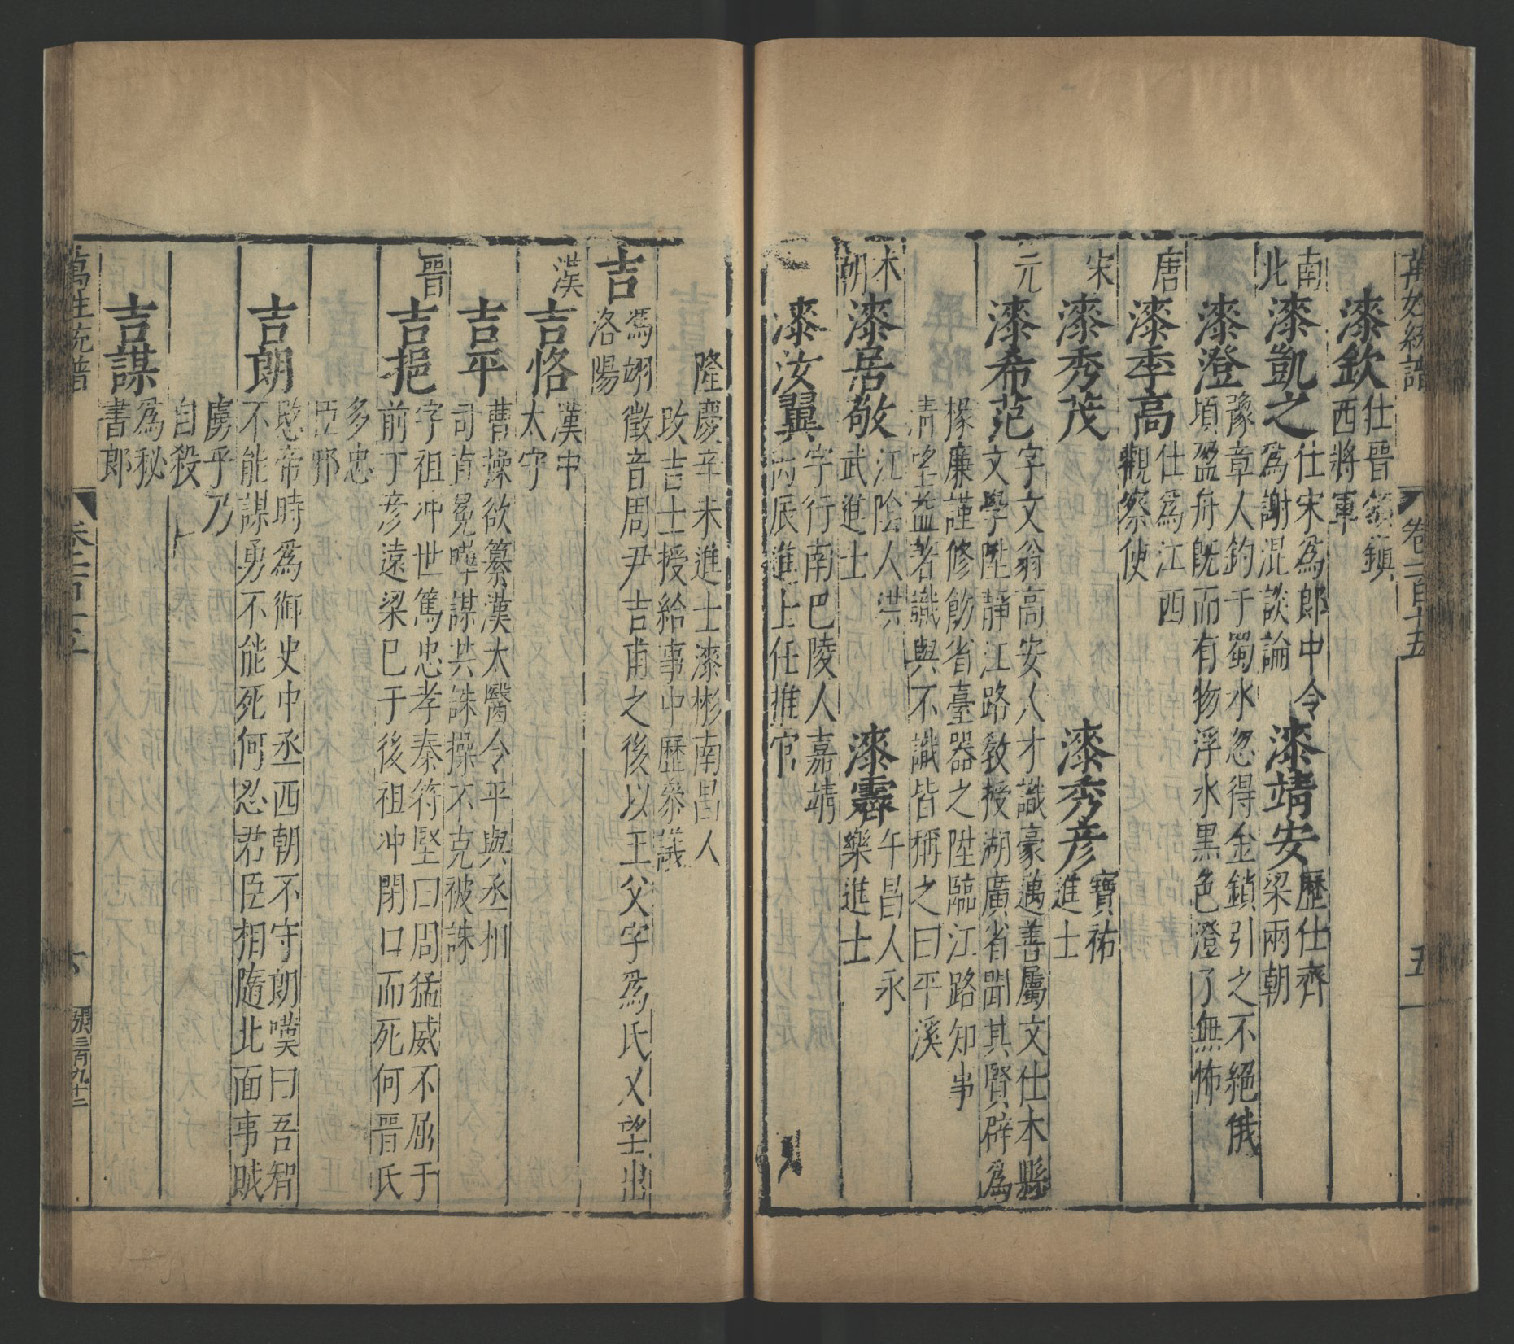 萬姓統譜
卷一百十五
五
漆欽
仕晉領鎮
西將軍
南北
漆凱之
仕宋為郎中令
為謝混談論
漆靖安
歷仕齊
梁兩朝
漆澄
豫章人釣于蜀水忽得金鎖引之不絕俄
頃盈舟既而有物浮水黑色澄了無怖
唐
漆季高
仕為江西
觀察使
宋
漆秀茂
漆秀彥
寶祐
進士
元
漆希范
字文翁高安人才識豪邁善屬文仕本縣
文學陞靜江路教授湖廣省聞其賢辟為
掾廉謹修飭省臺器之陞臨江路知事
清望益著識與不識皆稱之曰平溪
本朝
漆居敬
江陰人洪
武進士
漆霽
午昌人永
樂進士
漆汝翼
字行南巴陵人嘉靖
丙辰進士任推官
隆慶辛未進士漆彬南昌人
改吉士授給事中歷參議
吉
馮翊
洛陽
徵音周尹吉甫之後以王父字為氏又望出
漢
吉恪
漢中
太守
吉平
曹操欲篡漢太醫令平與丞相
司直晃曄謀共誅操不克被誅
晉
吉挹
字祖冲世篤忠孝秦符堅曰周猛威不屈于
前丁彥遠梁巳于後祖冲閉口而死何晉氏
多忠
臣耶
吉朗
愍帝時為御史中丞西朝不守朗嘆曰吾智
不能謀勇不能死何忍君臣相隨北面事賊
虜乎乃
自殺
吉謀
為秘
書郎
萬姓統譜
卷一百十五
六